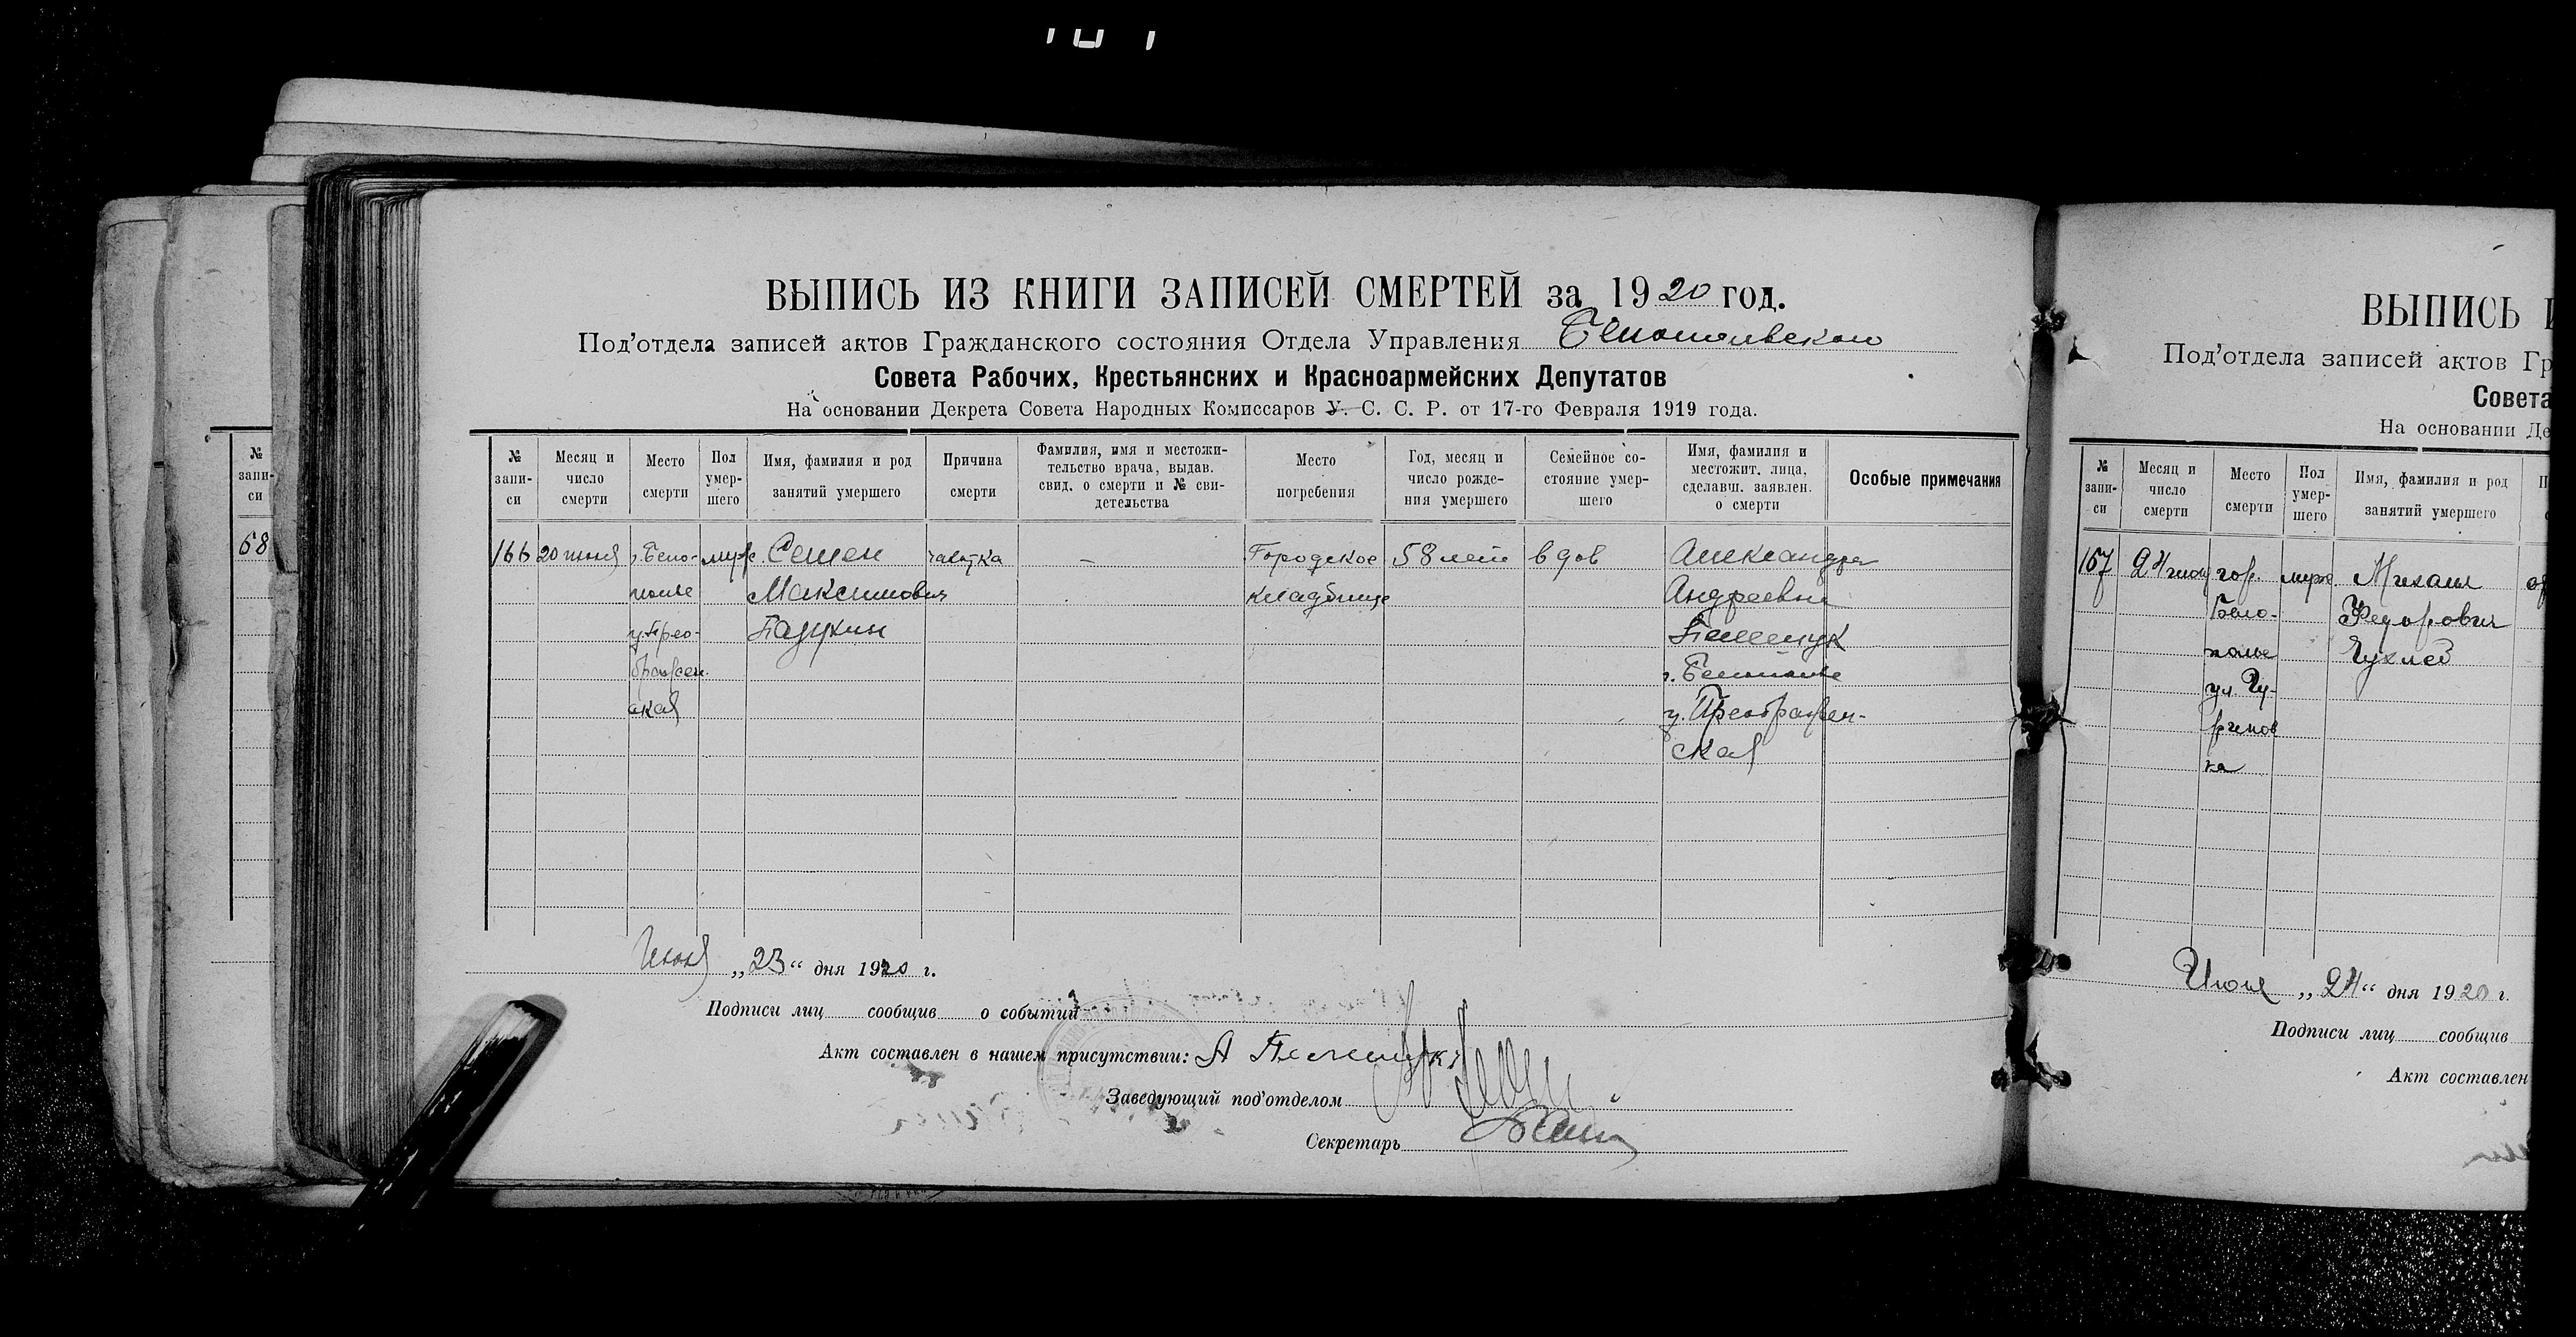 ВЫПИСЬ ИЗ КНИГИ ЗАПИСЕЙ СМЕРТЕЙ за 1920 год.
Под'отдела записей актов Гражданского состояния Отдела Управления Белопольского
Совета Рабочих, Крестьянских и Красноармейских Депутатов
На основании Декрета Совета Народных Комиссаров У. С. С. Р. от 17-го Февраля 1919 года.
№ запи-
си
Месяц и
число
смерти
Место
смерти
Пол
умер-
шего
Имя, фамилия и род
занятий умершего
Причина
смерти
Фамилия, имя и местожи-
тельство врача, выдав.
свид. о смерти и № сви-
детельства
Место
погребения
Год, месяц и
число рожде-
ния умершего
Семейное со-
стояние умер-
шего
Имя, фамилия и
местожит. лица,
сделавш. заявлен.
о смерти
Особые примечания
166
20 июня
г. Бело-
полье
у. Прео-
бражен.
ская
муж.
Семен
Максимович
чахотка
–
Городское
кладбище
58 лет
вдов
Александра
Андреевна
г. Белополье
у. Преображен-
ская
Июня „23“ дня 1920 г.
Подписи лиц сообщив о событий
Акт составлен в нашем присутствии: А
Заведующий под'отделом
Секретарь
№
запи-
си
68
ВЫПИСЬ И
Под'отдела записей актов Гр
Совета
На основании Де
№
запи-
си
Месяц и
число
смерти
Место
смерти
Пол
умер-
шего
Имя, фамилия и род
занятий умершего
167
24 июня
гор.
Бело-
полье
ул.
муж.
Михаил
Федорович
Июня „24“ дня 1920 г.
Подписи лиц сообщив
Акт составлен